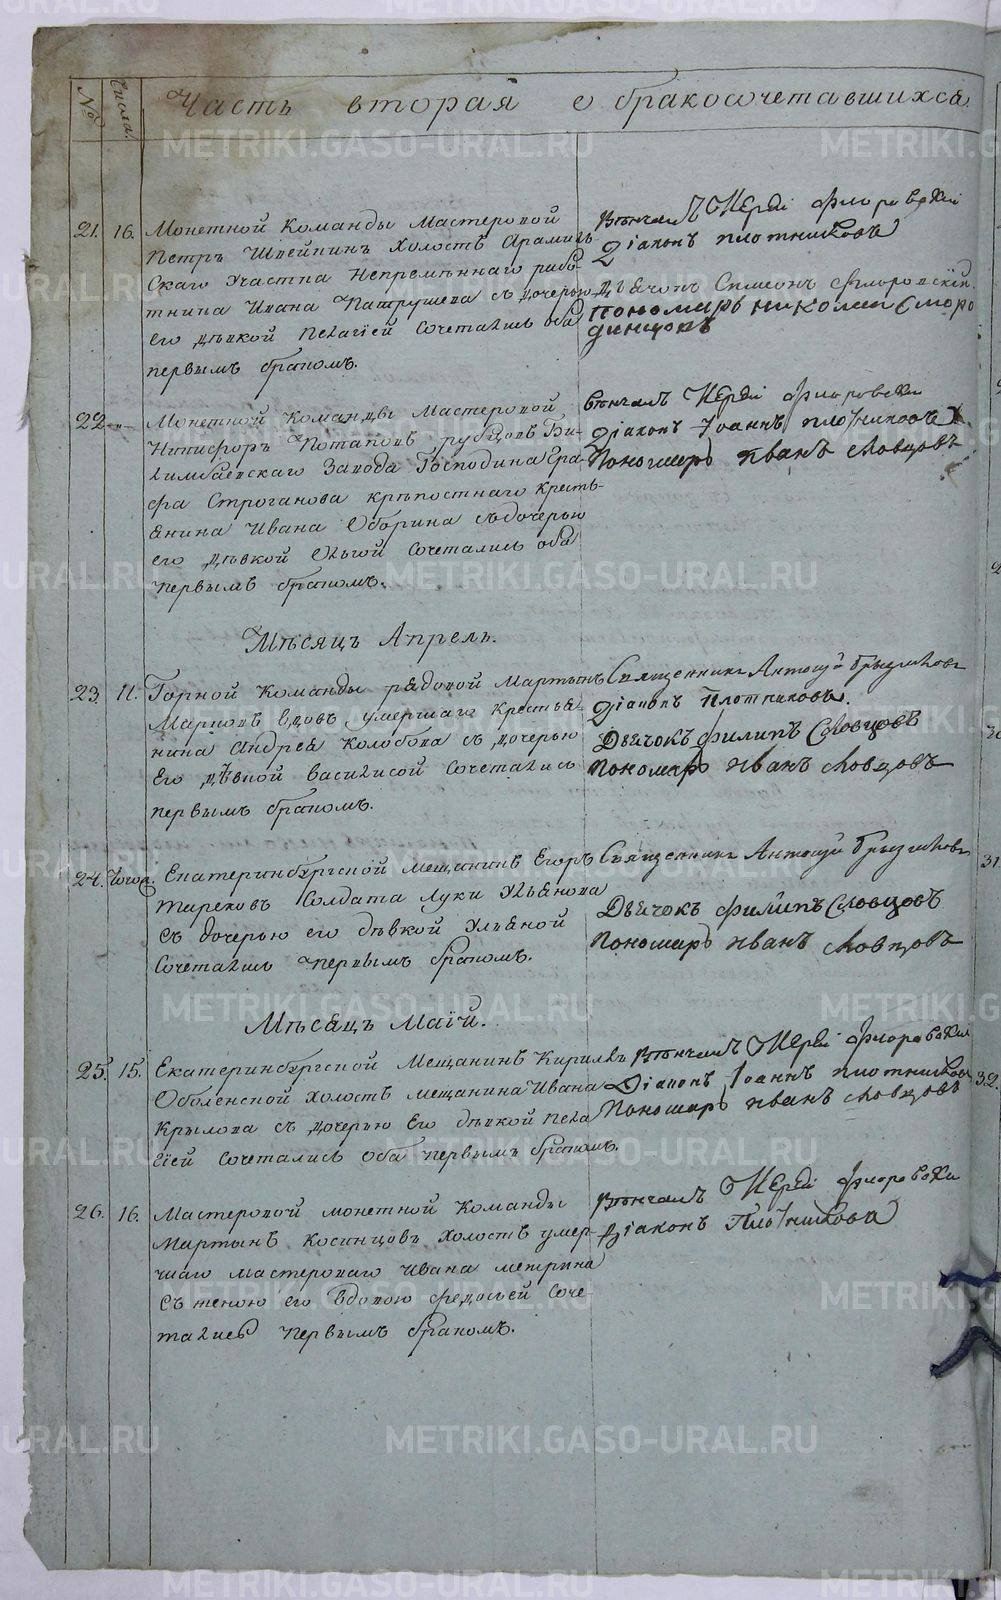 № Числа. Часть вторая о бракосочетавшихся
21. 16. Монетной Команды Мастеровой
Петръ Швейкинъ холостъ Арамиль
скаго Участка Непремѣннаго рабо-
тника Ивана Патрушева съ дочерью
его дѣвкой Пелагіей сочетались оба
первымъ бракомъ.
Вѣнчалъ Іерей Флоровскій
Діаконъ Плотниковъ
Дьячокъ Симеонъ Флоровскій
пономарь николай Смор
динцовъ
22. -"- Монетной Команды Мастеровой
Никифоръ Потаповъ рубцовъ Би-
лимбаевскаго Завода Господина Гра-
фа Строганова крѣпостнаго кресть-
янина Ивана Оборина съ дочерью
его дѣвкой Ольгой сочетались оба
первымъ бракомъ.
вѣнчалъ Іерей Флоровскій
діаконъ Іоаннъ плотниковъ
Пономарь иванъ словцовъ
Мѣсяцъ Апрель.
23. 11. Горной Команды рядовой Мартынъ
Марковъ вдовъ умершаго крестья
нина Андрея Колобова съ дочерью
Его дѣвкой Василисой сочетались
первымъ бракомъ.
Священникъ Антоній
діаконъ Плотниковъ.
Дьячокъ филипъ Словцовъ
Пономарь иванъ словцовъ
24. Екатеринбургской мещанинъ Егоръ
Солдата Луки Ульянова
съ дочерью его дѣвкой Ульяной
Сочетались первымъ бракомъ.
Священникъ Антоній
Дьячокъ филипъ Словцовъ
Пономарь иванъ словцовъ
Мѣсяцъ Маій.
25. 15. Екатеринбургской Мещанинъ Кирилъ
Оболенской холостъ мещанина Ивана
Крылова съ дочерью Его дѣвкой Пела
гіей сочетались оба первымъ бракомъ.
Вѣнчалъ Іерей Флоровскій
Діаконъ Іоаннъ плотниковъ
Пономарь иванъ словцовъ
26. 16. Мастеровой монетной Команды
Мартынъ Косинцовъ холостъ умер-
шаго мастероваго Ивана
съ женою его вдовою федосьей соче-
тались первымъ бракомъ.
Вѣнчалъ Іерей Флоровскій
Діаконъ Плотниковъ
31
32.
METRIKI.GASO-URAL.RU